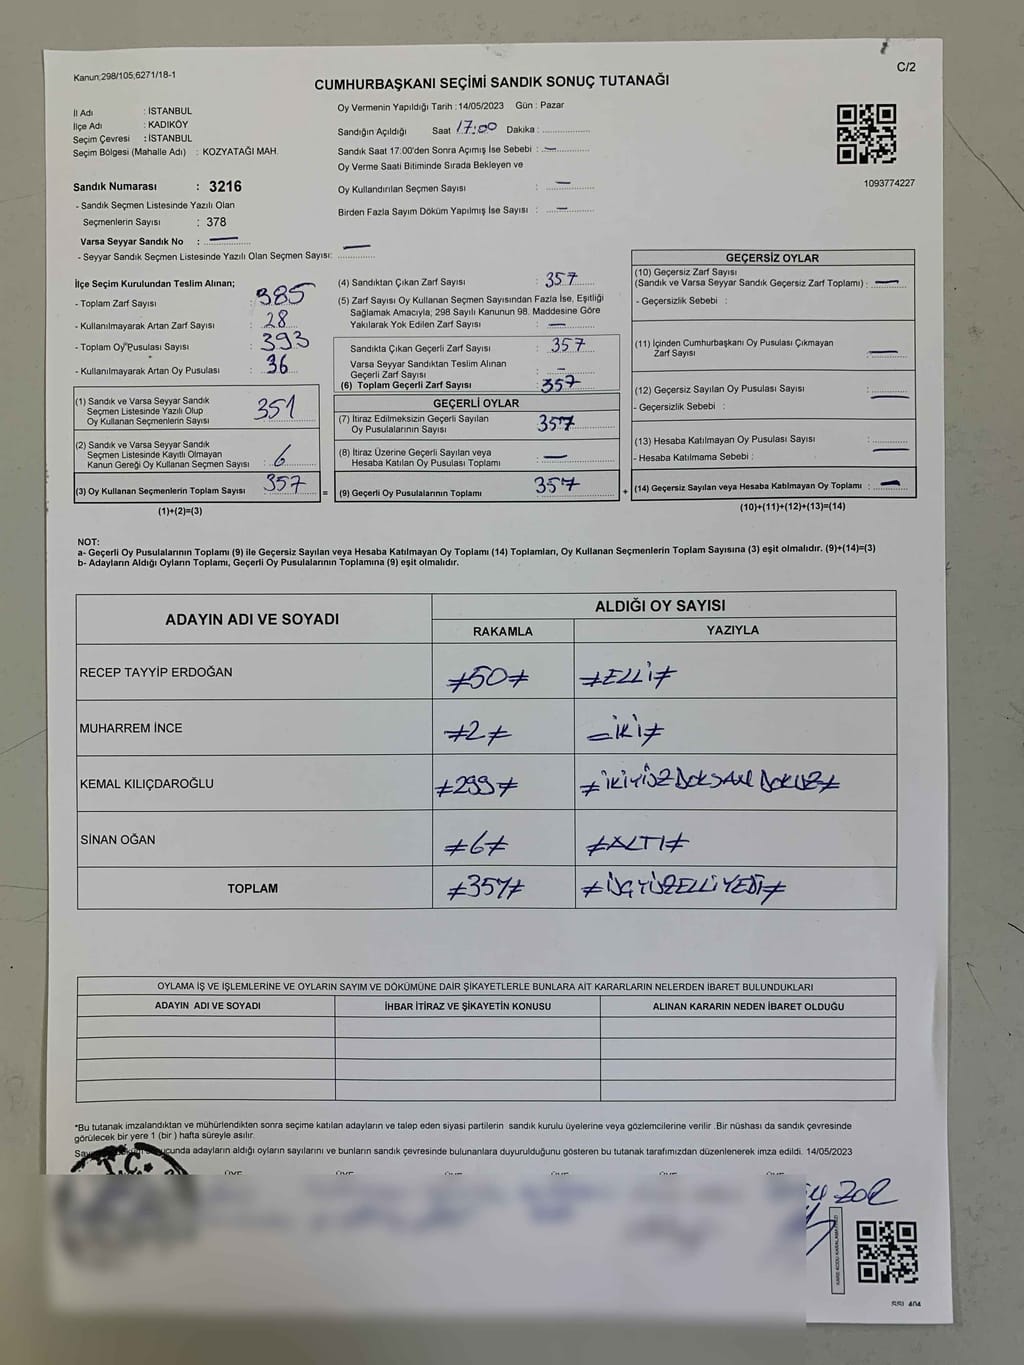 Kanun;298/105,6271/18-1
C/2
CUMHURBAŞKANI SEÇİMİ SANDIK SONUÇ TUTANAĞI
İl Adı : İSTANBUL
İlçe Adı : KADIKÖY
Seçim Çevresi : İSTANBUL
Seçim Bölgesi (Mahalle Adı) : KOZYATAĞI MAH.
Sandık Numarası : 3216
- Sandık Seçmen Listesinde Yazılı Olan
Seçmenlerin Sayısı : 378
Varsa Seyyar Sandık No :
- Seyyar Sandık Seçmen Listesinde Yazılı Olan Seçmen Sayısı:
Oy Vermenin Yapıldığı Tarih :14/05/2023 Gün : Pazar
Sandığın Açıldığı Saat 17:00 Dakika :
Sandık Saat 17:00'den Sonra Açımış İse Sebebi : —
Oy Verme Saati Bitiminde Sırada Bekleyen ve
Oy Kullandırılan Seçmen Sayısı : —
Birden Fazla Sayım Döküm Yapılmış İse Sayısı : —
1093774227
İlçe Seçim Kurulundan Teslim Alınan;
- Toplam Zarf Sayısı : 385
- Kullanılmayarak Artan Zarf Sayısı : 28
- Toplam Oy Pusulası Sayısı : 393
- Kullanılmayarak Artan Oy Pusulası : 36
(1) Sandık ve Varsa Seyyar Sandık
Seçmen Listesinde Yazılı Olup
Oy Kullanan Seçmenlerin Sayısı : 351
(2) Sandık ve Varsa Seyyar Sandık
Seçmen Listesinde Kayıtlı Olmayan
Kanun Gereği Oy Kullanan Seçmen Sayısı : 6
(3) Oy Kullanan Seçmenlerin Toplam Sayısı : 357
(1)+(2)=(3)
(4) Sandıktan Çıkan Zarf Sayısı : 357
(5) Zarf Sayısı Oy Kullanan Seçmen Sayısından Fazla İse, Eşitliği
Sağlamak Amacıyla; 298 Sayılı Kanunun 98. Maddesine Göre
Yakılarak Yok Edilen Zarf Sayısı : —
Sandıkta Çıkan Geçerli Zarf Sayısı : 357
Varsa Seyyar Sandıktan Teslim Alınan
Geçerli Zarf Sayısı : —
(6) Toplam Geçerli Zarf Sayısı : 357
GEÇERLİ OYLAR
(7) İtiraz Edilmeksizin Geçerli Sayılan
Oy Pusulalarının Sayısı : 357
(8) İtiraz Üzerine Geçerli Sayılan veya
Hesaba Katılan Oy Pusulası Toplamı : —
= (9) Geçerli Oy Pusulalarının Toplamı : 357
GEÇERSİZ OYLAR
(10) Geçersiz Zarf Sayısı
(Sandık ve Varsa Seyyar Sandık Geçersiz Zarf Toplamı) : —
- Geçersizlik Sebebi :
(11) İçinden Cumhurbaşkanı Oy Pusulası Çıkmayan
Zarf Sayısı : —
(12) Geçersiz Sayılan Oy Pusulası Sayısı : —
- Geçersizlik Sebebi :
(13) Hesaba Katılmayan Oy Pusulası Sayısı : —
- Hesaba Katılmama Sebebi :
+ (14) Geçersiz Sayılan veya Hesaba Katılmayan Oy Toplamı : —
(10)+(11)+(12)+(13)=(14)
NOT:
a- Geçerli Oy Pusulalarının Toplamı (9) ile Geçersiz Sayılan veya Hesaba Katılmayan Oy Toplamı (14) Toplamları, Oy Kullanan Seçmenlerin Toplam Sayısına (3) eşit olmalıdır. (9)+(14)=(3)
b- Adayların Aldığı Oyların Toplamı, Geçerli Oy Pusulalarının Toplamına (9) eşit olmalıdır.
ADAYIN ADI VE SOYADI
ALDIĞI OY SAYISI
RAKAMLA YAZIYLA
RECEP TAYYİP ERDOĞAN ≠50≠ ≠ELLİ≠
MUHARREM İNCE ≠2≠ =İKİ≠
KEMAL KILIÇDAROĞLU ≠299≠ ≠İKİYÜZDOKSAN DOKUZ≠
SİNAN OĞAN ≠6≠ ≠ALTI≠
TOPLAM ≠357≠ ≠ÜÇYÜZELLİYEDİ≠
OYLAMA İŞ VE İŞLEMLERİNE VE OYLARIN SAYIM VE DÖKÜMÜNE DAİR ŞİKAYETLERLE BUNLARA AİT KARARLARIN NELERDEN İBARET BULUNDUKLARI
ADAYIN ADI VE SOYADI İHBAR İTİRAZ VE ŞİKAYETİN KONUSU ALINAN KARARIN NEDEN İBARET OLDUĞU
*Bu tutanak imzalandıktan ve mühürlendikten sonra seçime katılan adayların ve talep eden siyasi partilerin sandık kurulu üyelerine veya gözlemcilerine verilir .Bir nüshası da sandık çevresinde
görülecek bir yere 1 (bir ) hafta süreyle asılır.
adayların aldığı oyların sayılarını ve bunların sandık çevresinde bulunanlara duyurulduğunu gösteren bu tutanak tarafımızdan düzenlenerek imza edildi. 14/05/2023
T.C.
ZOR